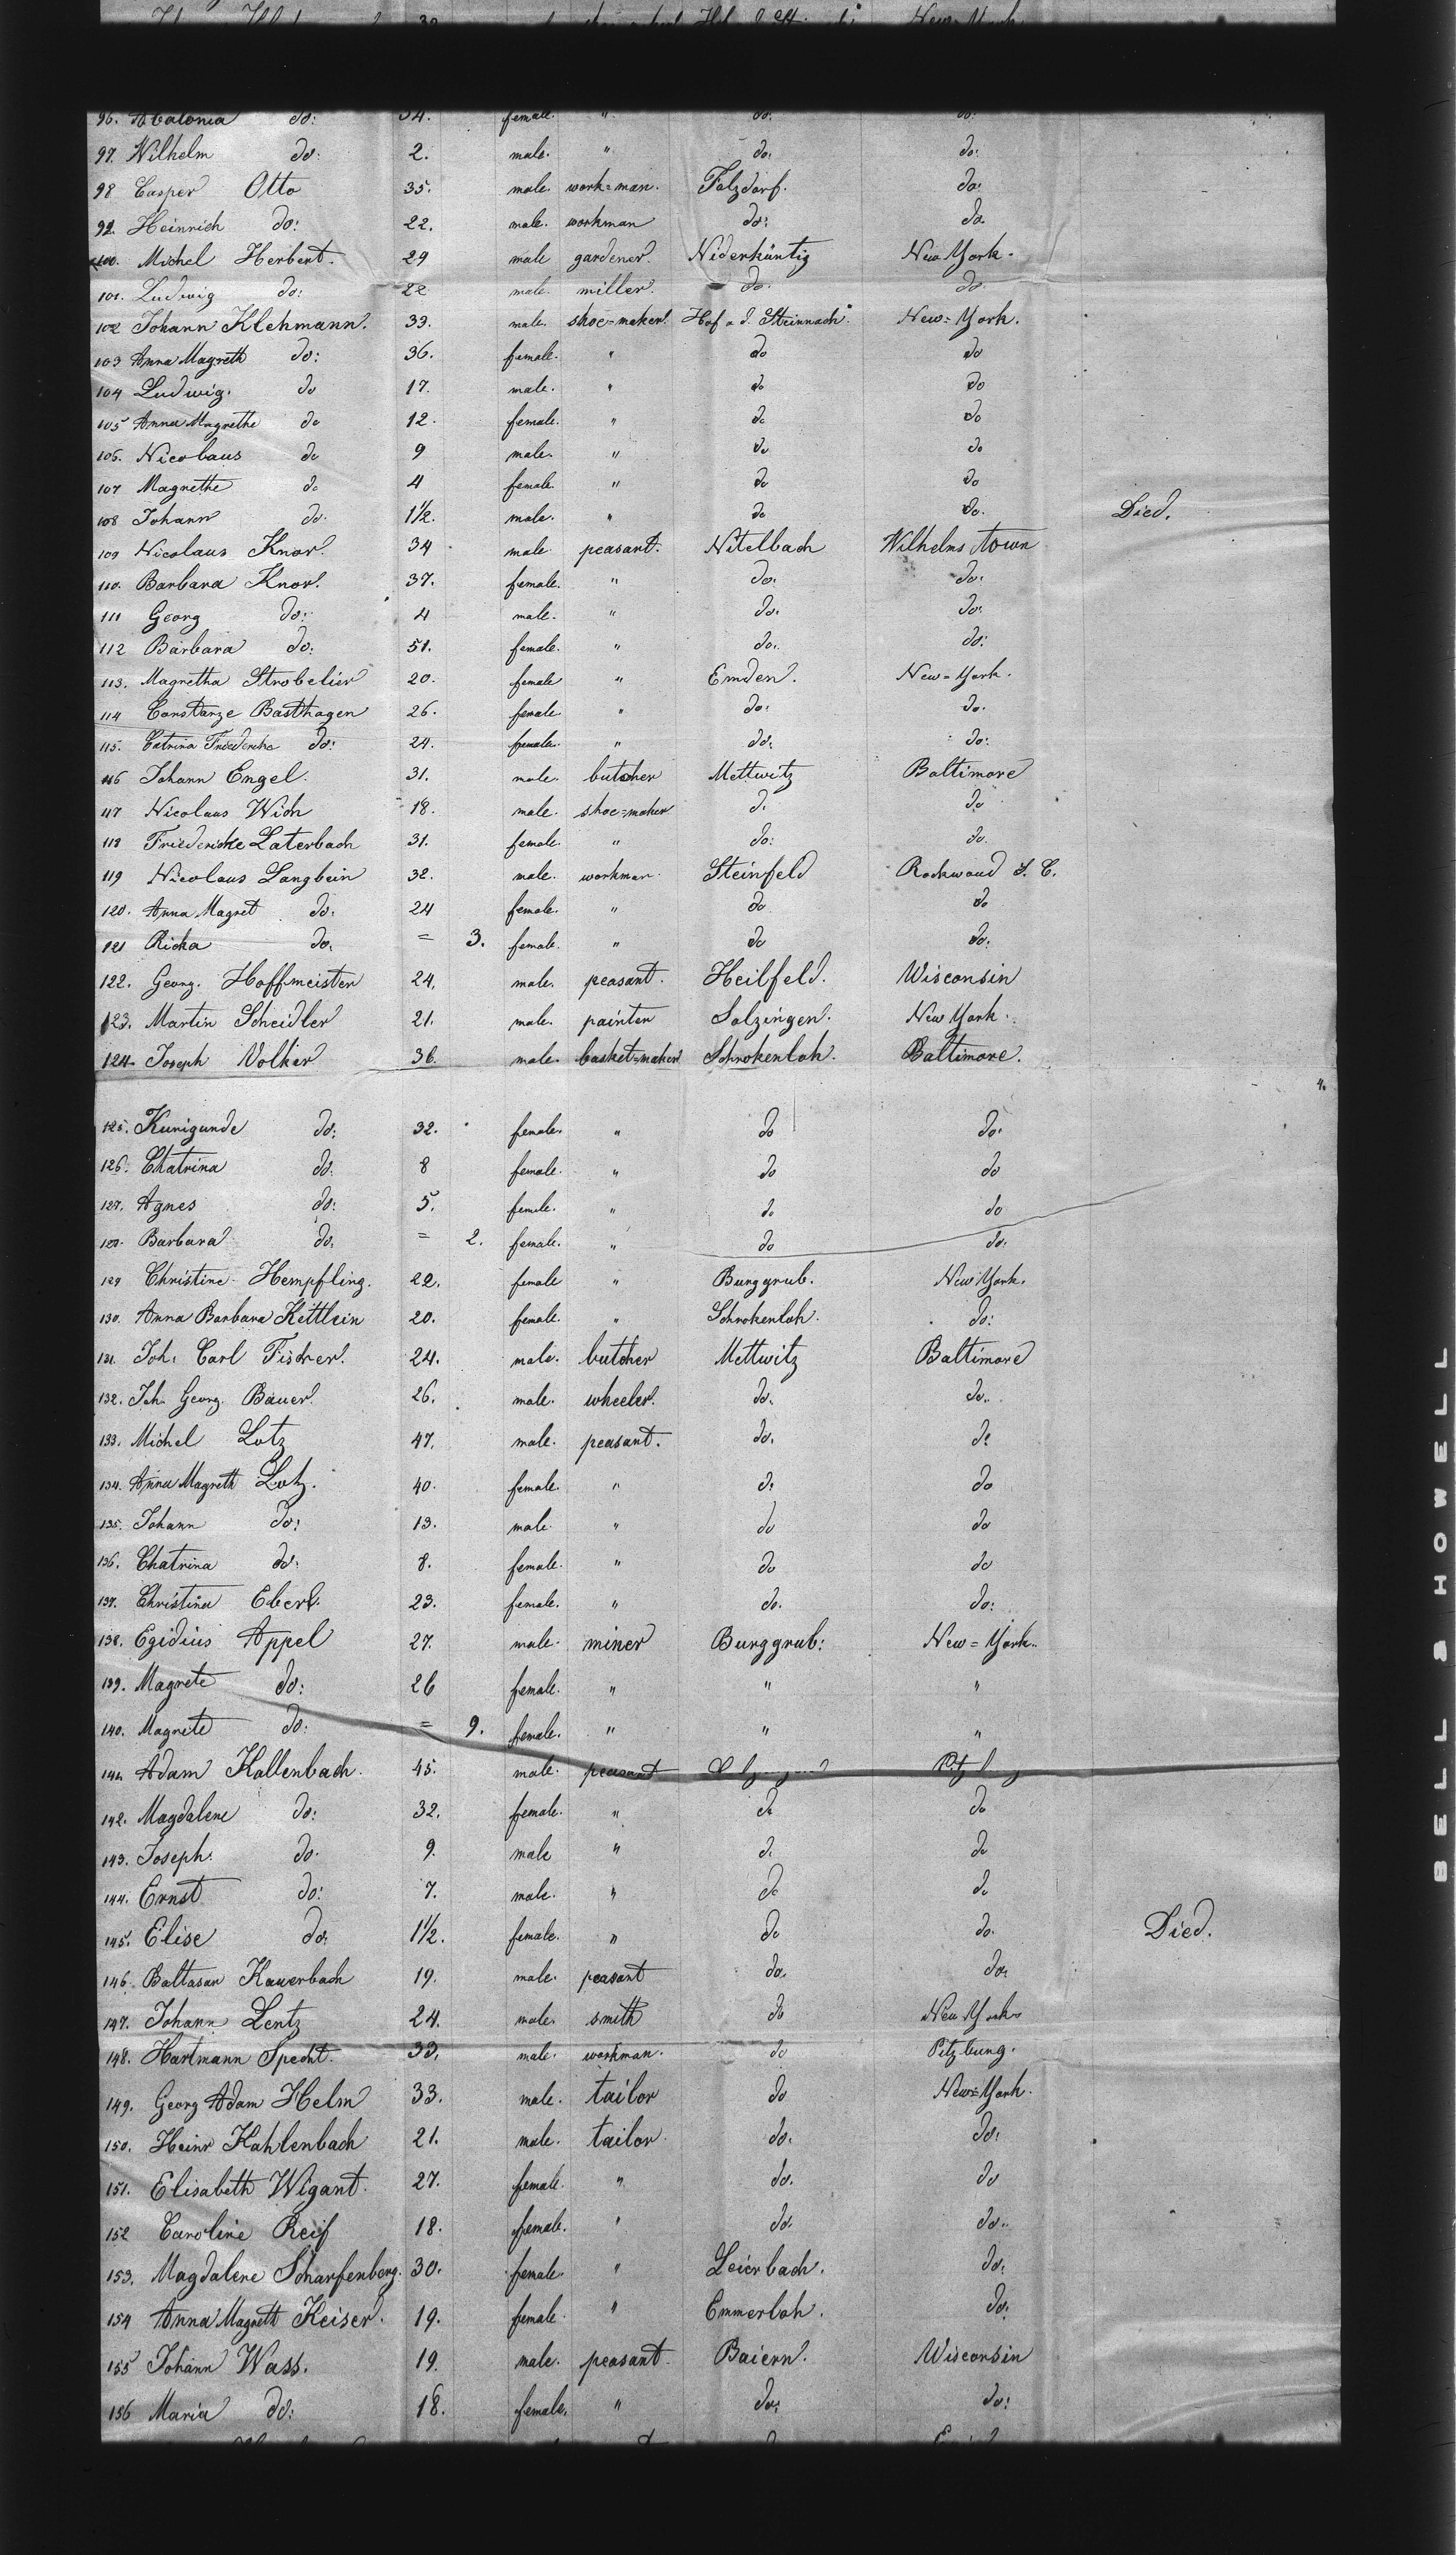 96. Abalonia do: 34. female. " do. do.
97. Wilhelm do: 2. male. " do: do:
98 Casper Otto 35. male. work=man. Folzdorf. do:
99. Heinrich do: 22. male. workman do: do.
100. Michel Herbert. 29 male gardener. Niderküntig New York.
101. Ludwig do: 22 male. miller. do. do.
102 Johann Klehmann. 33. male. shoe=maker. Hof a. d. Steinnach. New=York.
103 Anna Magreth do: 36. female. " do do
104 Ludwig. do 17. male. " do do
105 Anna Magrethe do 12. female. " do do
106. Nicolaus do 9 male. " do do
107 Magrethe do 4 female. " do do
108 Johann do. 1½. male. " do do. Died.
109 Nicolaus Knor. 34 male peasant. Nitelbach Wilhelms town
110. Barbara Knor. 37. female. " do. do.
111 Georg do: 4 male. " do. do.
112 Barbara do: 51. female. " do. do:
113. Magretha Strobelier 20. female " Emden. New=York.
114 Constanze Basthagen 26. female " do: do.
115. Catrina Friedericke do: 24. female. " do: do:
116 Johann Engel. 31. male. butcher Mettwitz Baltimore
117 Nicolaus Wich 18. male. shoe=maker do. do
118 Friedericke Laterbach 31. female. " do: do.
119 Nicolaus Langbein 32. male. workman. Steinfeld Rockwoud S. C.
120. Anna Magret do: 24 female. " do do
121 Ricka do. = 3. female. " do do.
122. Georg. Hoffmeister 24. male. peasant. Heilfeld. Wisconsin
123. Martin Scheidler 21. male. painter Salzingen. New York.
124. Joseph Volker 36. male. basket=maker Schrokenloh. Baltimore.
4.
125. Kunigunde do: 32. female. " do do.
126. Chatrina do. 8 female. " do do
127. Agnes do: 5. female. " do do
128. Barbara do. = 2. female. " do do.
129 Christine Hempfling. 22. female " Burggrub. New York.
130. Anna Barbara Kettlein 20. female. " Schrokenloh. do:
131. Joh. Carl Fischer. 24. male. butcher Mettwitz Baltimore
132. Joh. Georg. Bauer. 26. male. wheeler. do. do.
133. Michel Lotz 47. male. peasant. do. do
134. Anna Magreth Lotz. 40. female. " do do
135. Johann do: 13. male. " do do
136. Chatrina do. 8. female. " do do
137. Christina Eberl. 23. female. " do. do:
138. Egidius Appel 27. male. miner Burggrub: New=York.
139. Magrete do: 26 female. " " "
140. Magrete do: = 9. female. " " "
141. Adam Kallenbach. 45. male. peasant
142. Magdalene do: 32. female. " do do
143. Joseph. do. 9. male " do do
144. Ernst do: 7. male. " do do
145. Elise do. 1½. female. " do do. Died.
146. Baltasar Kauerbach 19. male. peasant do. do.
147. Johann Lentz 24. male. smith do New York
148. Hartmann Specht. 33. male. workman. do Pitzburg.
149. Georg Adam Helm 33. male. tailor do New=York.
150. Heinr Kahlenbach 21. male. tailor do. do.
151. Elisabeth Wigant. 27. female. " do. do
152 Caroline Reif 18. female. " do. do.
153. Magdalene Scharfenberg. 30. female. " Leierbach. do.
154 Anna Magreth Keiser. 19. female. " Emmerloh. do.
155 Johann Wass. 19. male. peasant. Baiern. Wisconsin
156 Maria do: 18. female. " do: do:
BELL & HOWELL